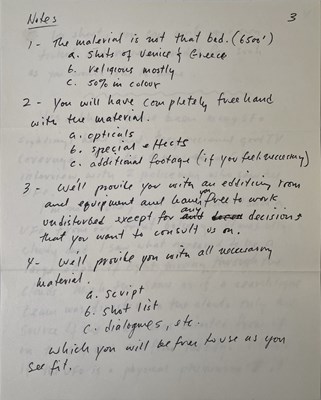 Notes
3
1 - The material is not that bad. (6500')
a. shots of Venice & Greece
b. religious mostly
c. 50% in colour
2 - You will have completely free hand
with the material.
a. opticals
b. special effects
c. additional footage (if you feel necessary)
3 - We'll provide you with an edditing room
and equipment and leave you free to work
undisturbed except for any decisions
that you want to consult us on.
4 - We'll provide you with all necessary
material.
a. script
b. shot list
c. dialogues, etc.
which you will be free to use as you
see fit.